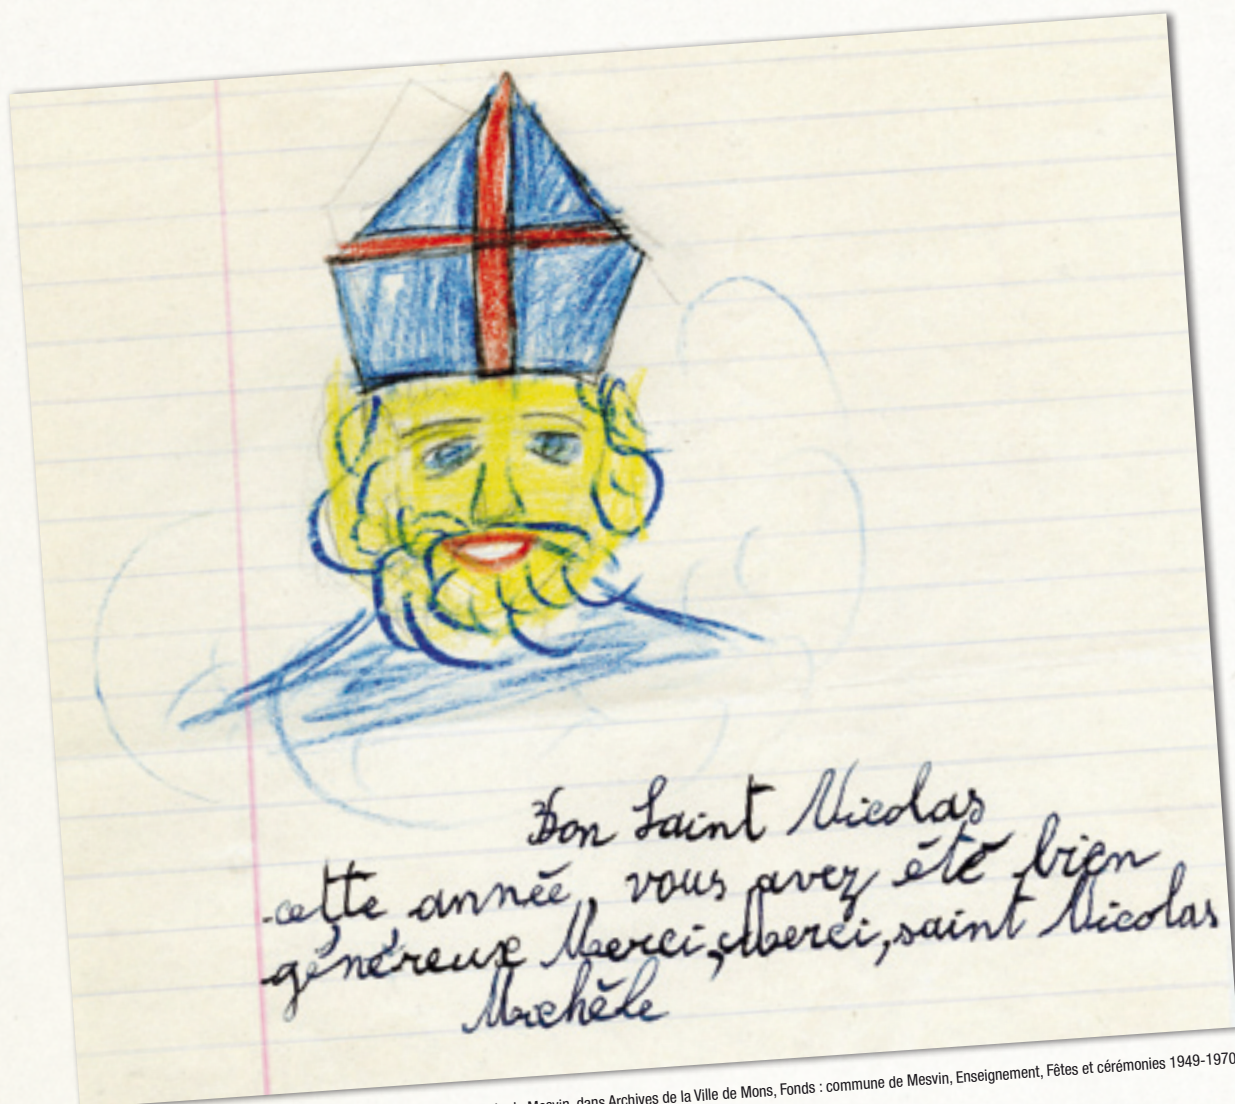 Bon Saint Nicolas
cette année, vous avez été bien
généreux Merci, Merci, saint Nicolas
Michèle
de Mesvin, dans Archives de la Ville de Mons, Fonds : commune de Mesvin, Enseignement, Fêtes et cérémonies 1949-1970